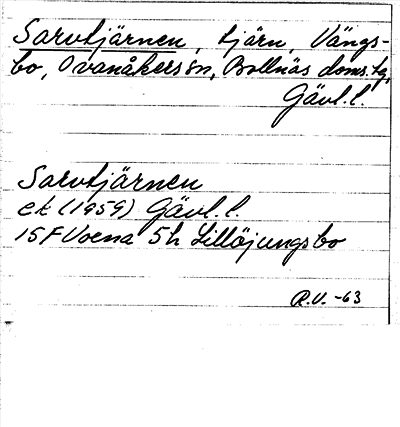 Sarvtjärnen, tjärn, Vängs-
bo, Ovanåkers sn, Bollnäs doms.tg,
Gävl.l.
Sarvtjärnen
ek (1959) Gävl.l.
15F Voxna 5h Lillöjungsbo
R.V. -63